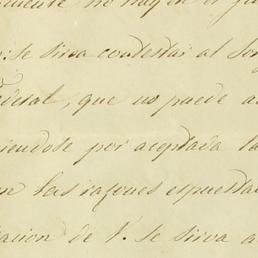 no hay en el
se sirva contestar al
que no puede
iendose por aceptada la
las razones espuestas
acion de V. se sirva a